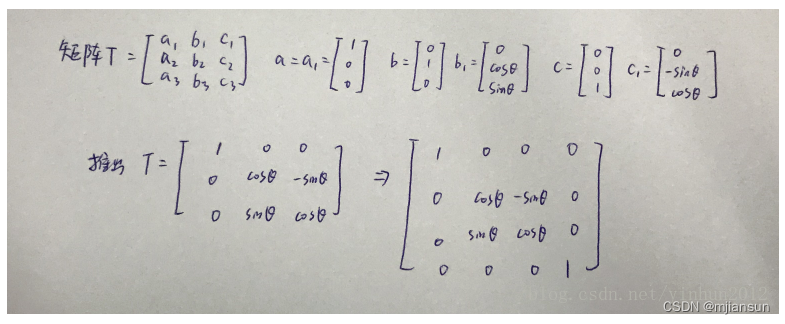 矩阵 T = [a₁ b₁ c₁; a₂ b₂ c₂; a₃ b₃ c₃] a = a₁ = [1; 0; 0] b = [0; 1; 0] b₁ = [0; cosθ; sinθ] c = [0; 0; 1] c₁ = [0; -sinθ; cosθ]
推出 T = [1 0 0; 0 cosθ -sinθ; 0 sinθ cosθ] ⇒ [1 0 0 0; 0 cosθ -sinθ 0; 0 sinθ cosθ 0; 0 0 0 1]
blog.csdn.net/yinhun2012
CSDN @mjiansun